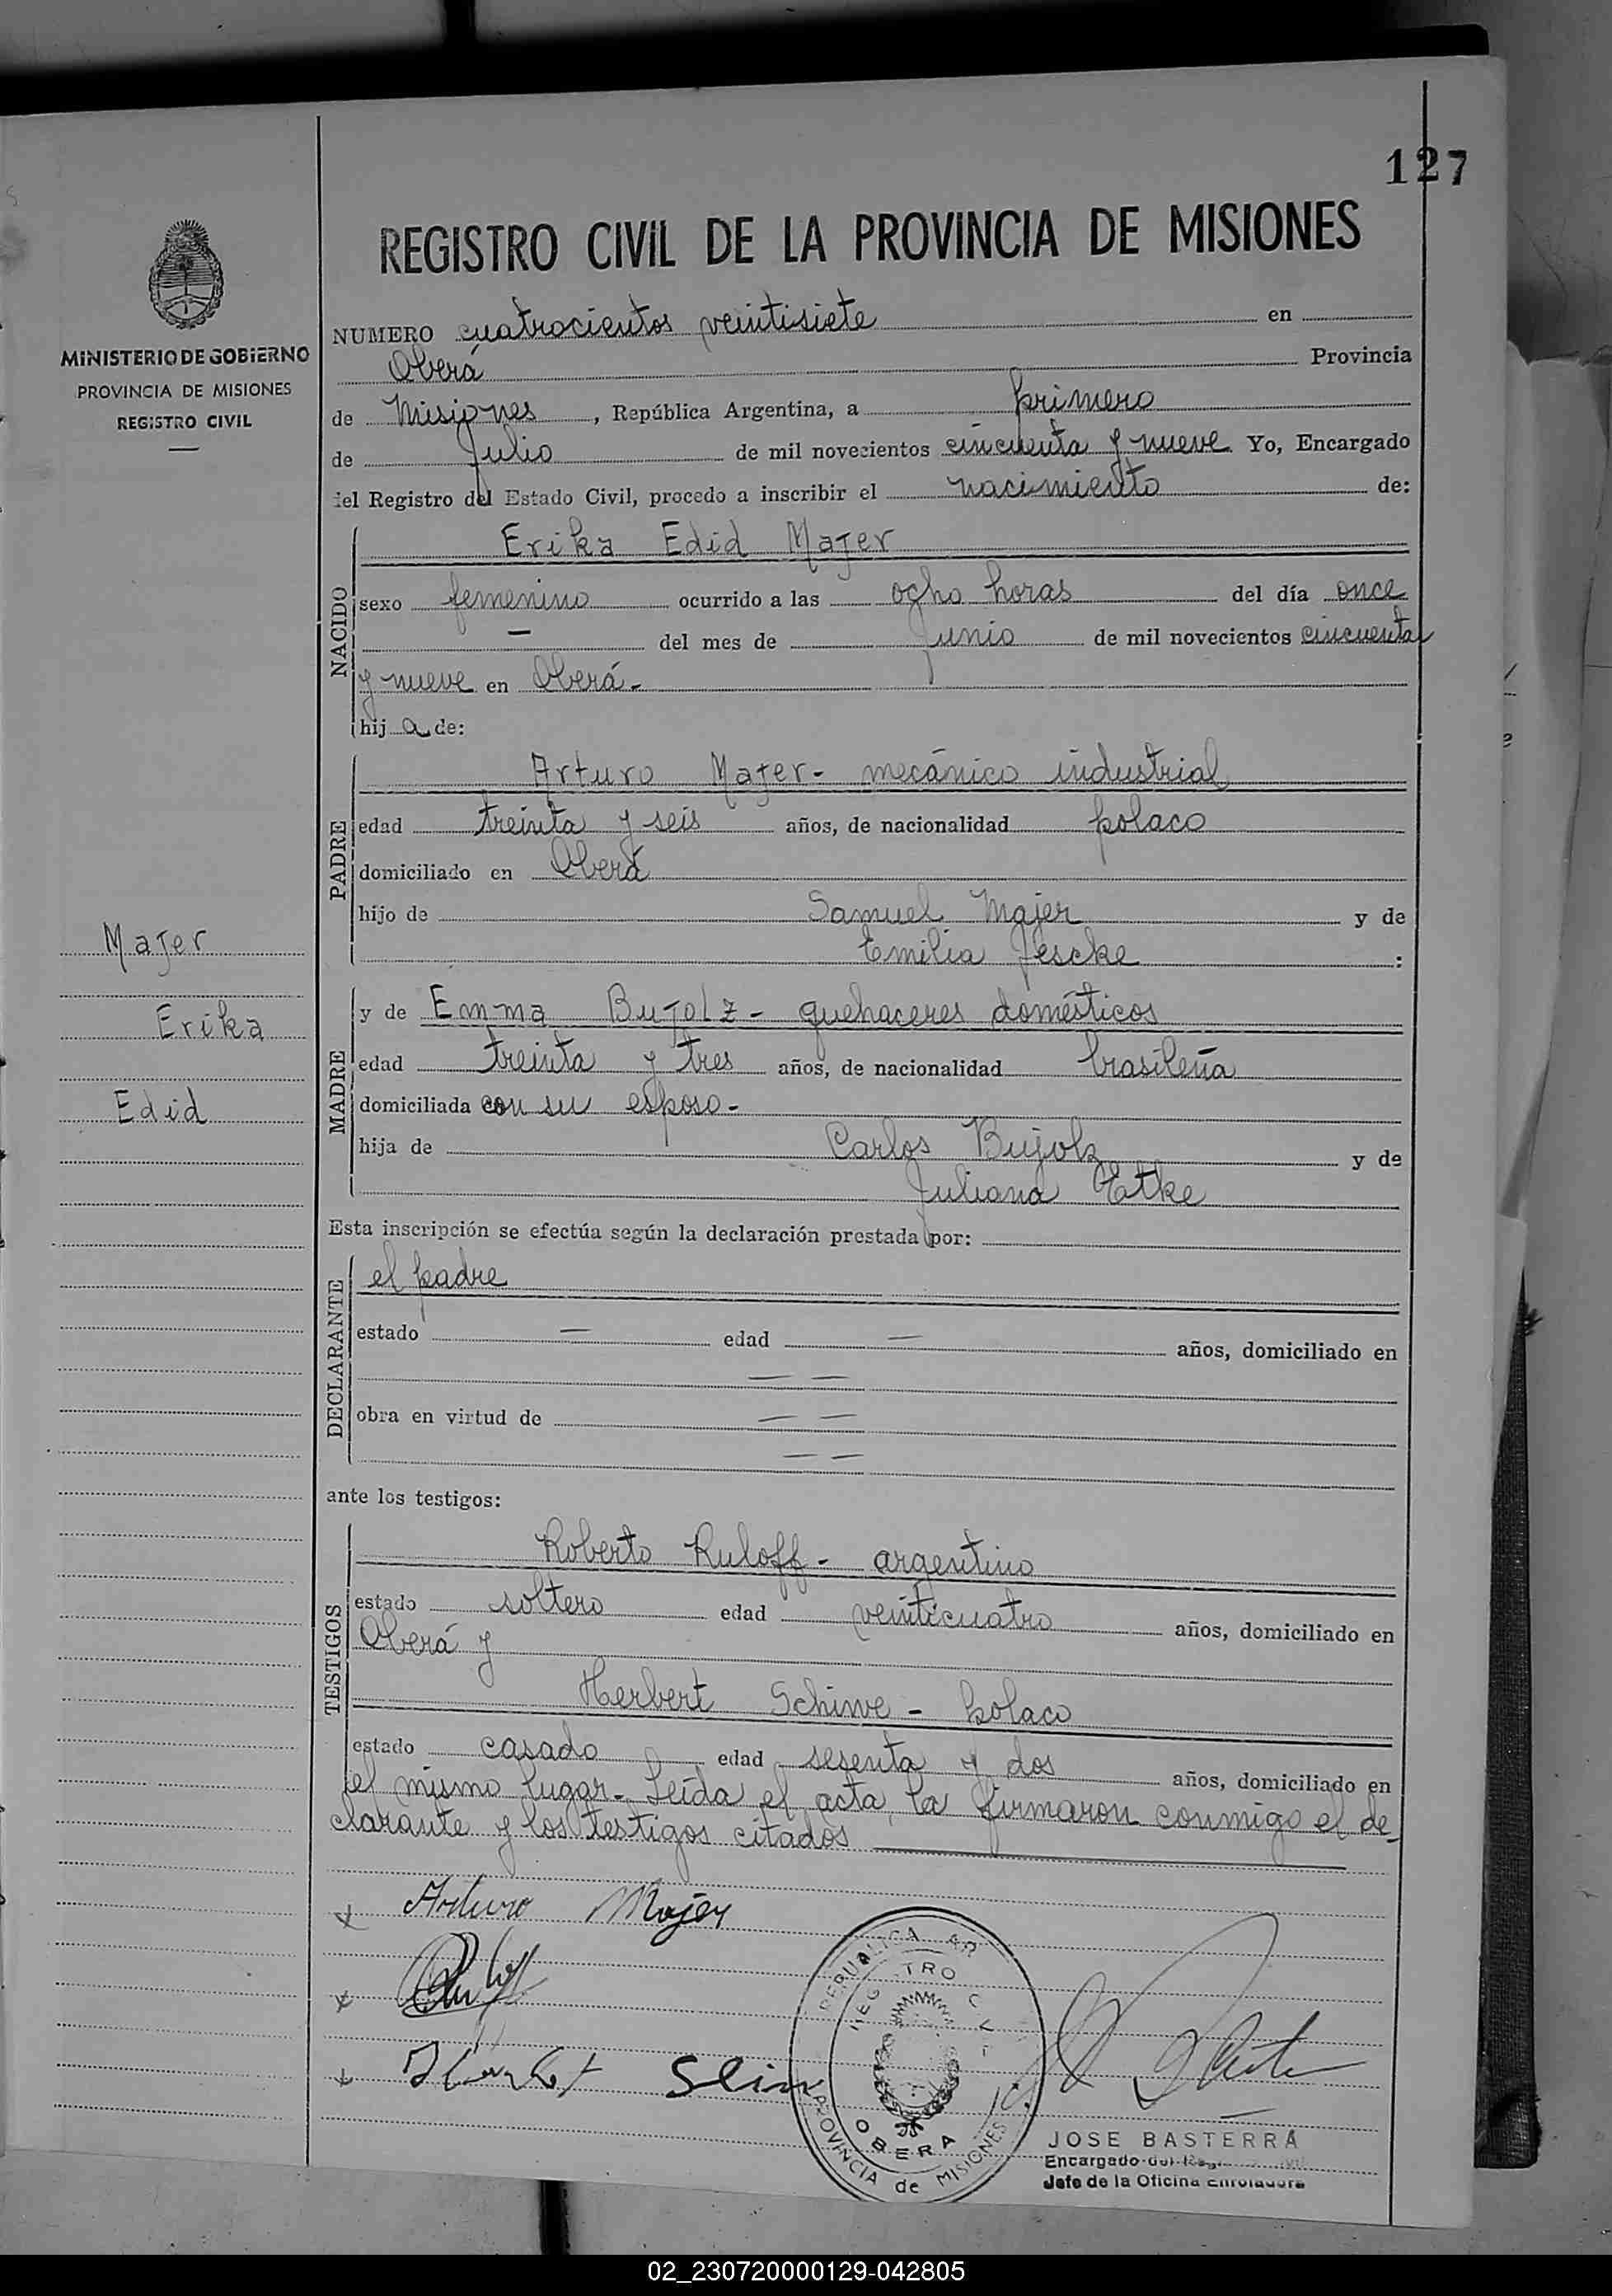 127
REGISTRO CIVIL DE LA PROVINCIA DE MISIONES
MINISTERIO DE GOBIERNO
PROVINCIA DE MISIONES
REGISTRO CIVIL
NUMERO cuatrocientos veintisiete en
Oberá Provincia
de Misiones, República Argentina, a primero
de Julio de mil novecientos cincuenta y nueve Yo, Encargado
del Registro del Estado Civil, procedo a inscribir el nacimiento de:
NACIDO
Erika Edid Majer
sexo femenino ocurrido a las ocho horas del día once
— del mes de Junio de mil novecientos cincuenta
y nueve en Oberá-
hija de:
PADRE
Arturo Majer- mecánico industrial
edad treinta y seis años, de nacionalidad polaco
domiciliado en Oberá
hijo de Samuel Majer y de
Emilia Jescke :
MADRE
y de Emma Bujolz- quehaceres domésticos
edad treinta y tres años, de nacionalidad brasileña
domiciliada con su esposo-
hija de Carlos Bujolz y de
Juliana Etke
Majer
Erika
Edid
Esta inscripción se efectúa según la declaración prestada por:
DECLARANTE
el padre
estado — edad — años, domiciliado en
— —
obra en virtud de — —
— —
ante los testigos:
TESTIGOS
Roberto Ruloff- argentino
estado soltero edad veinticuatro años, domiciliado en
Oberá y
Herbert Schiwe - polaco
estado casado edad sesenta y dos años, domiciliado en
el mismo lugar- Leída el acta, la firmaron conmigo el de-
clarante y los testigos citados
Arturo Majer
REPUBLICA AR
REGISTRO CIVI
OBERA
PROVINCIA de MISIONES
JOSE BASTERRA
Encargado del
Jefe de la Oficina Enroladora
02_230720000129-042805